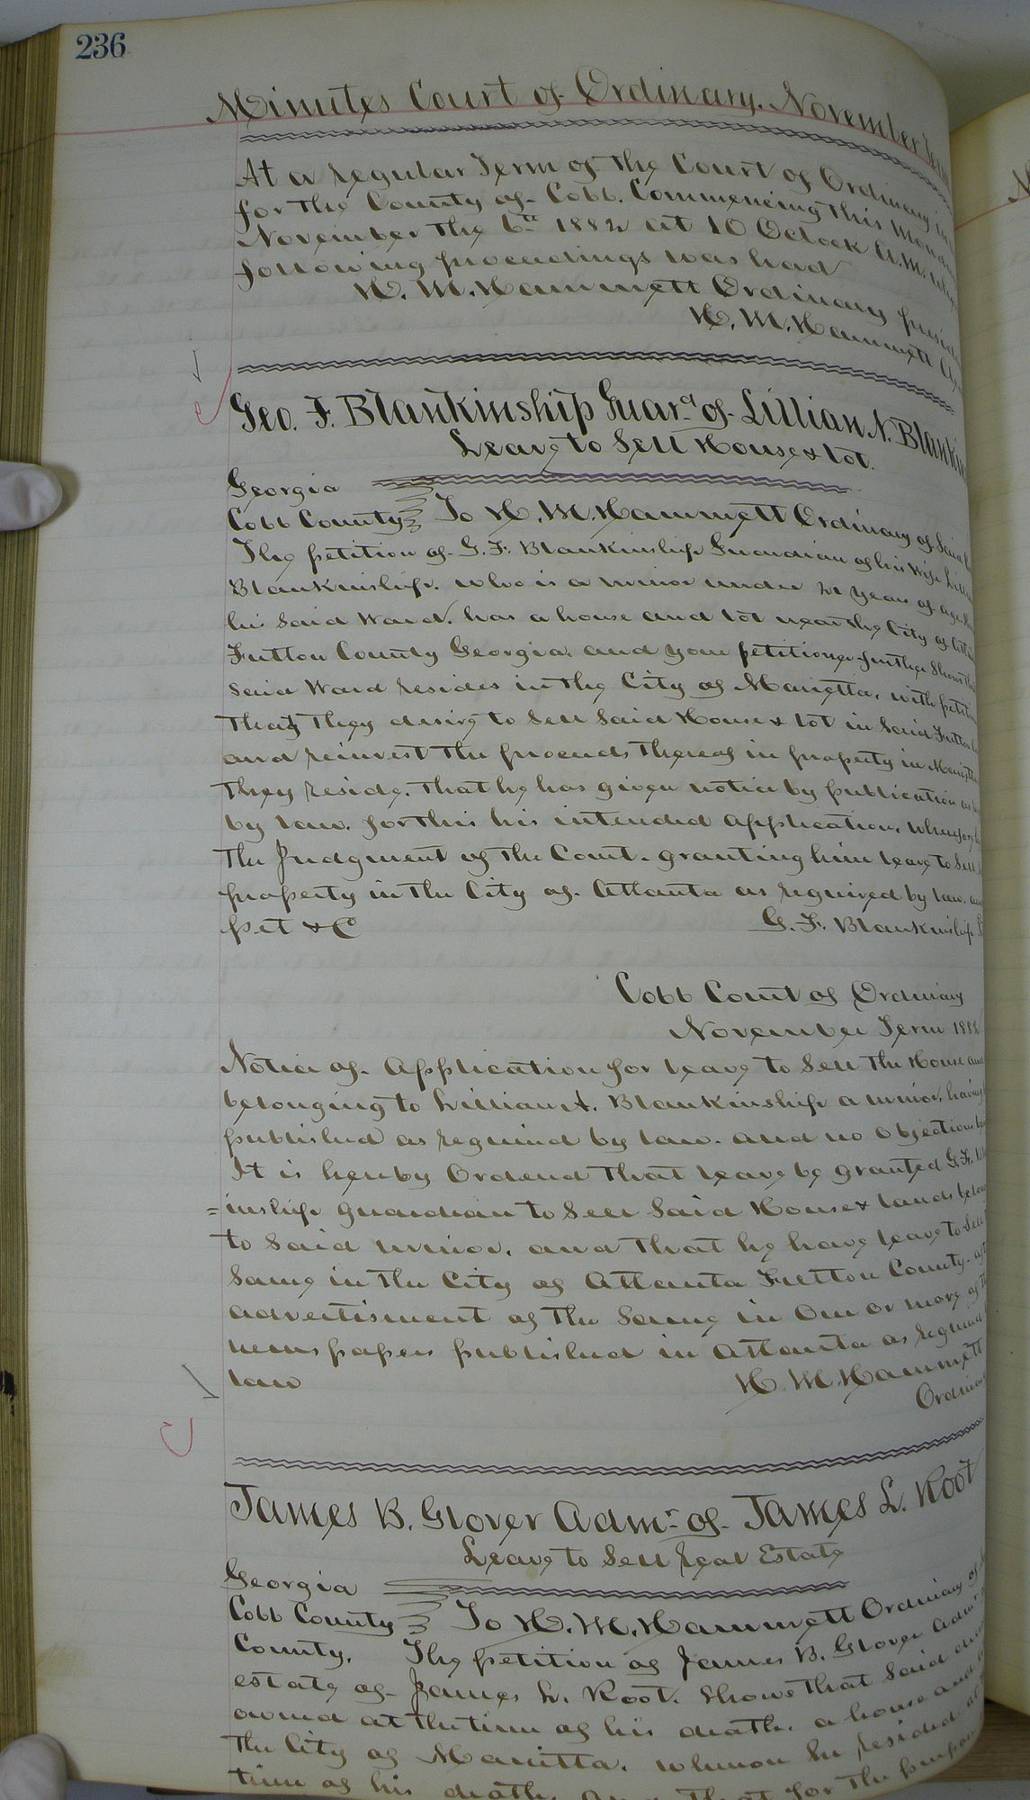 236
Minutes Court of Ordinary. November
At a regular Term of the Court of Ordinary in
for the County of Cobb. Commencing this Monday
November the 6th 1882 at 10 Oclock A.M. the
following proceedings was had
H. M. Hammett Ordinary
H. M. Hammett
Geo. F. Blankinship Guard. of Lillian N.
Leave to Sell House & Lot.
Georgia
Cobb County To H. M. Hammett Ordinary of Said
The petition of G. F. Blankinship Guardian of his Wife
Blankinship. who is a minor under 21 years of age.
his Said Ward. has a house and lot near the City of
Fulton County Georgia. and your petitioner further Shows
Said Ward resides in the City of Marietta. with
That they desire to Sell Said House & Lot in Said
and reinvest the proceeds thereof in property in
They reside. That he has given notice by publication
by law. for this his intended application.
The Judgment of the Court. granting him leave to Sell
property in the City of Atlanta as required by law.
pet &C G. F. Blankinship
Cobb Court of Ordinary
November Term
Notice of Application for leave to Sell the House
belonging to Lillian A. Blankinship a minor. having
published as required by law. and no Objections
It is hereby Ordered That leave be granted G. F.
=inship guardian to Sell Said House & lands
to Said minor. and that he have leave to Sell
Same in the City of Atlanta Fulton County.
advertisment of the Same in One or more of
news papers published in Atlanta as
law H. M. Hammett
James B. Glover Admr. of James L. Root
Leave to Sell real Estate
Georgia
Cobb County To H. M. Hammett Ordinary of
County. The petition of James B. Glover
estate of James L. Root. Shows that Said
owned at the time of his death. a house and
The City of Marietta. whereon he resided
time of his death. that for the